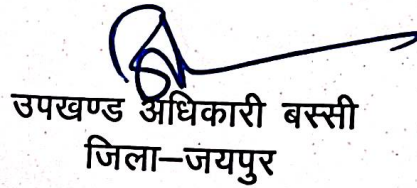 उपखण्ड अधिकारी बस्सी
जिला–जयपुर